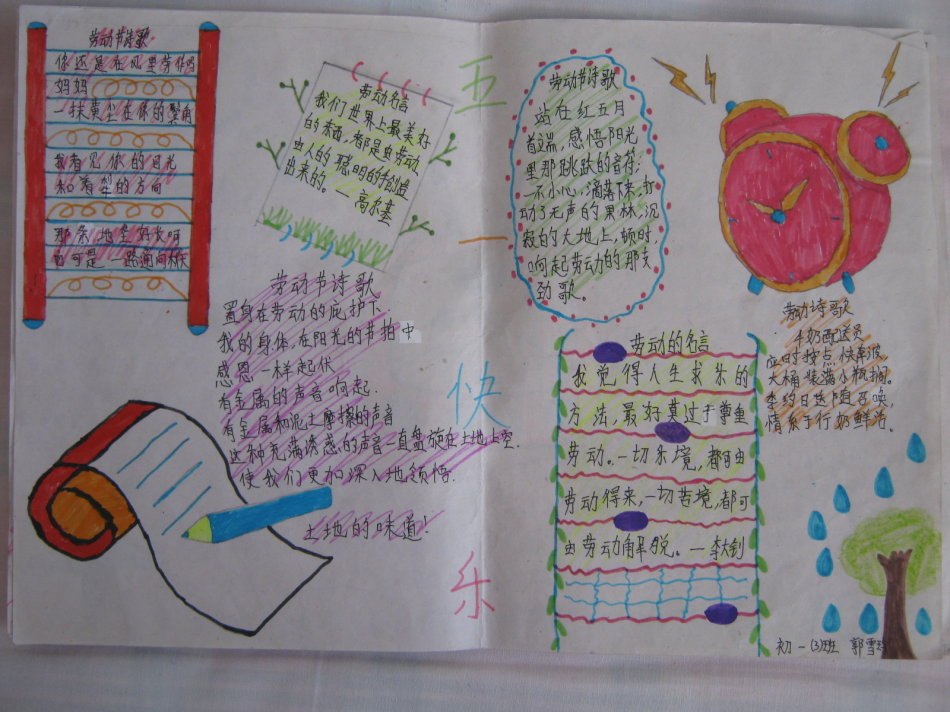 劳动节诗歌
你还是在风里劳作吗
妈妈
一抹黄尘在你的鬓角
我看见你的目光
和着犁的方向
那条地垄好长啊
劳动名言
我们世界上最美好
的东西，都是由劳动
由人的聪明的手创造
出来的。
高尔基
劳动节诗歌
置身在劳动的庇护下
我的身体，在阳光的节拍中
感恩一样起伏
有金属的声音响起
有金属和泥土摩擦的声音
这种充满诱惑的声音一直盘旋在土地上空
使我们更加深入地领悟
土地的味道！
五
一
快
乐
劳动节诗歌
站在红五月
首端，感悟阳光
里那跳跃的音符；
一不小心，滴落下来，打
动了无声的果林，沉
寂的大地上，顿时，
响起劳动的那支
劲歌。
劳动的名言
我觉得人生求乐的
方法，最好莫过于尊重
劳动。一切乐境，都可由
劳动得来，一切苦境，都可
由劳动解脱。—李大钊
劳动诗歌
牛奶配送员
应时按点快车波，
大桶装满小瓶搁。
季约日送随召唤，
情系千行奶鲜活。
初一(3)班 郭雪